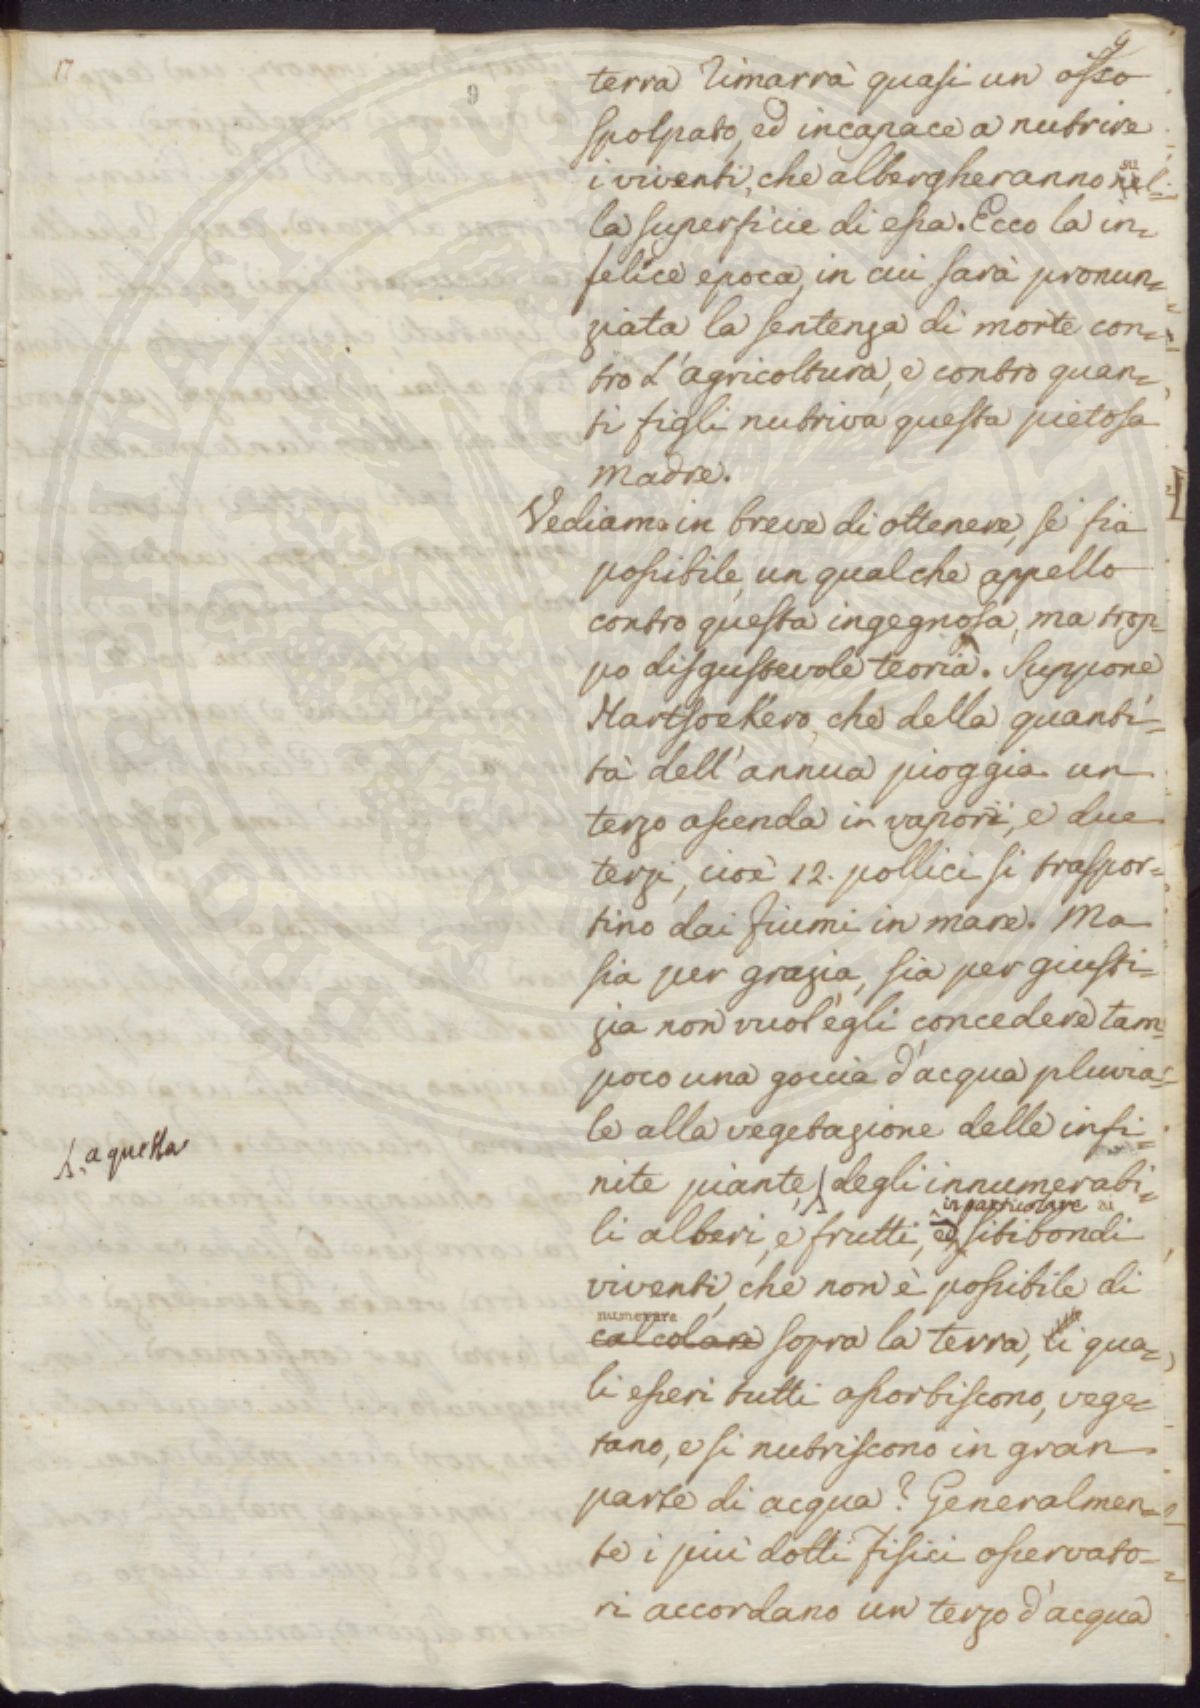 17
9
9
terra rimarrà quasi un osso
spolpato, ed incapace a nutrire
i viventi, che albergheranno nel-
su
la superficie di essa. Ecco la in=
felice epoca, in cui sarà pronun=
ziata la sentenza di morte con=
tro l'agricoltura, e contro quan=
ti figli nutriva questa pietosa
madre.
Vediamo in breve di ottenere, se sia
possibile, un qualche appello
contro questa ingegnosa, ma trop=
po disgustevole teoria. Suppone
Hartsoekero, che della quanti=
tà dell'annua pioggia un
terzo ascenda in vapori, e due
terzi, cioè 12. pollici si traspor=
tino dai fiumi in mare. Ma
sia per grazia, sia per giusti=
zia non vuol'egli concedere tam
poco una goccia d'acqua pluvia=
le alla vegetazione delle infi=
nite piante, degli innumerabi=
a quella
in particolare ai
li alberi, e frutti, ed sitibondi
viventi, che non è possibile di
numerare
calcolare sopra la terra, li qua=
li esseri tutti assorbiscono, vege=
tano, e si nutriscono in gran
parte di acqua? Generalmen=
te i più dotti fisici osservato=
ri accordano un terzo d'acqua